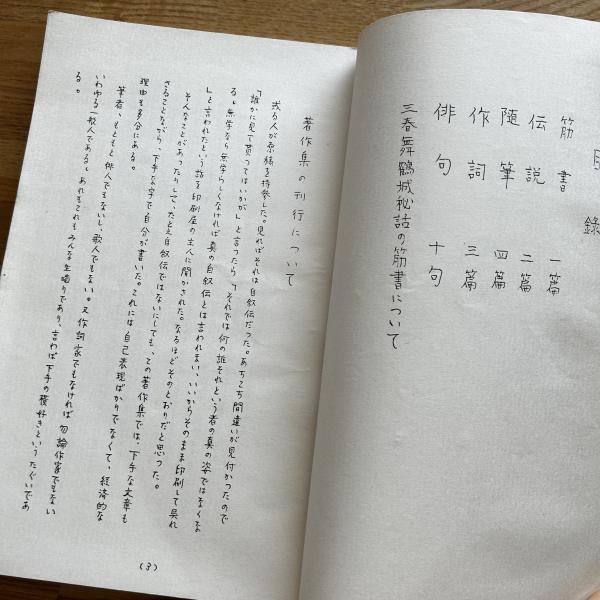 目録
筋書 一篇
伝説 二篇
随筆 四篇
作詞 三篇
俳句 十句
三春舞鶴城秘話の筋書について
著作集の刊行について
或る人が原稿を持参した。見ればそれは自叙伝だった。あちこち間違いが見付かったので
「誰かに見て貰ってはいかが」と言ったら「それでは何の誰それという者の真の姿ではなくな
る。無学なら無学らしくなければ真の自叙伝とは言われまい、いいからそのまま印刷して呉れ
」と言われたという話を印刷屋の主人に聞かされた。なるほどそのとおりだと思った。
そんなことがあったりして、たとえ自叙伝ではないにしても、この著作集では、下手な文章も
さることながら、下手な字で自分が書いた。これには自己表現ばかりでなくて、経済的な
理由も多分にある。
筆者、もともと俳人でもないし、歌人でもない。又作詞家でもなければ勿論作家でもない
いわゆる一般人である。あれもこれもみんな生噛りであり、言わば下手の横好きというたぐいであ
る。
(3)